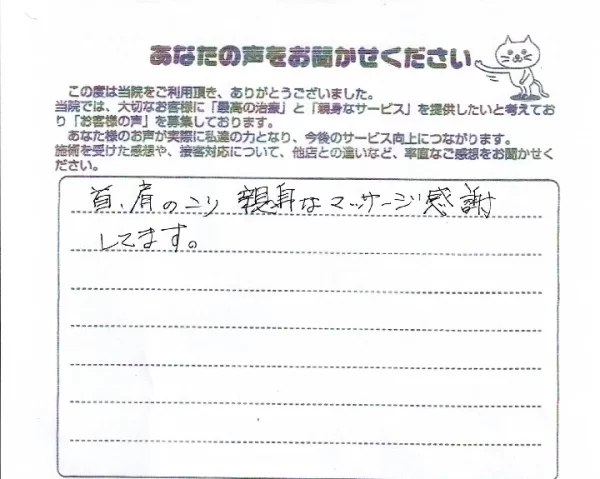 あなたの声をお聞かせください
この度は当院をご利用頂き、ありがとうございました。
当院では、大切なお客様に「最高の治療」と「親身なサービス」を提供したいと考えてお
り「お客様の声」を募集しております。
あなた様のお声が実際に私達の力となり、今後のサービス向上につながります。
施術を受けた感想や、接客対応について、他店との違いなど、率直なご感想をお聞かせく
ださい。
首、肩のこり 親身なマッサージ感謝
してます。